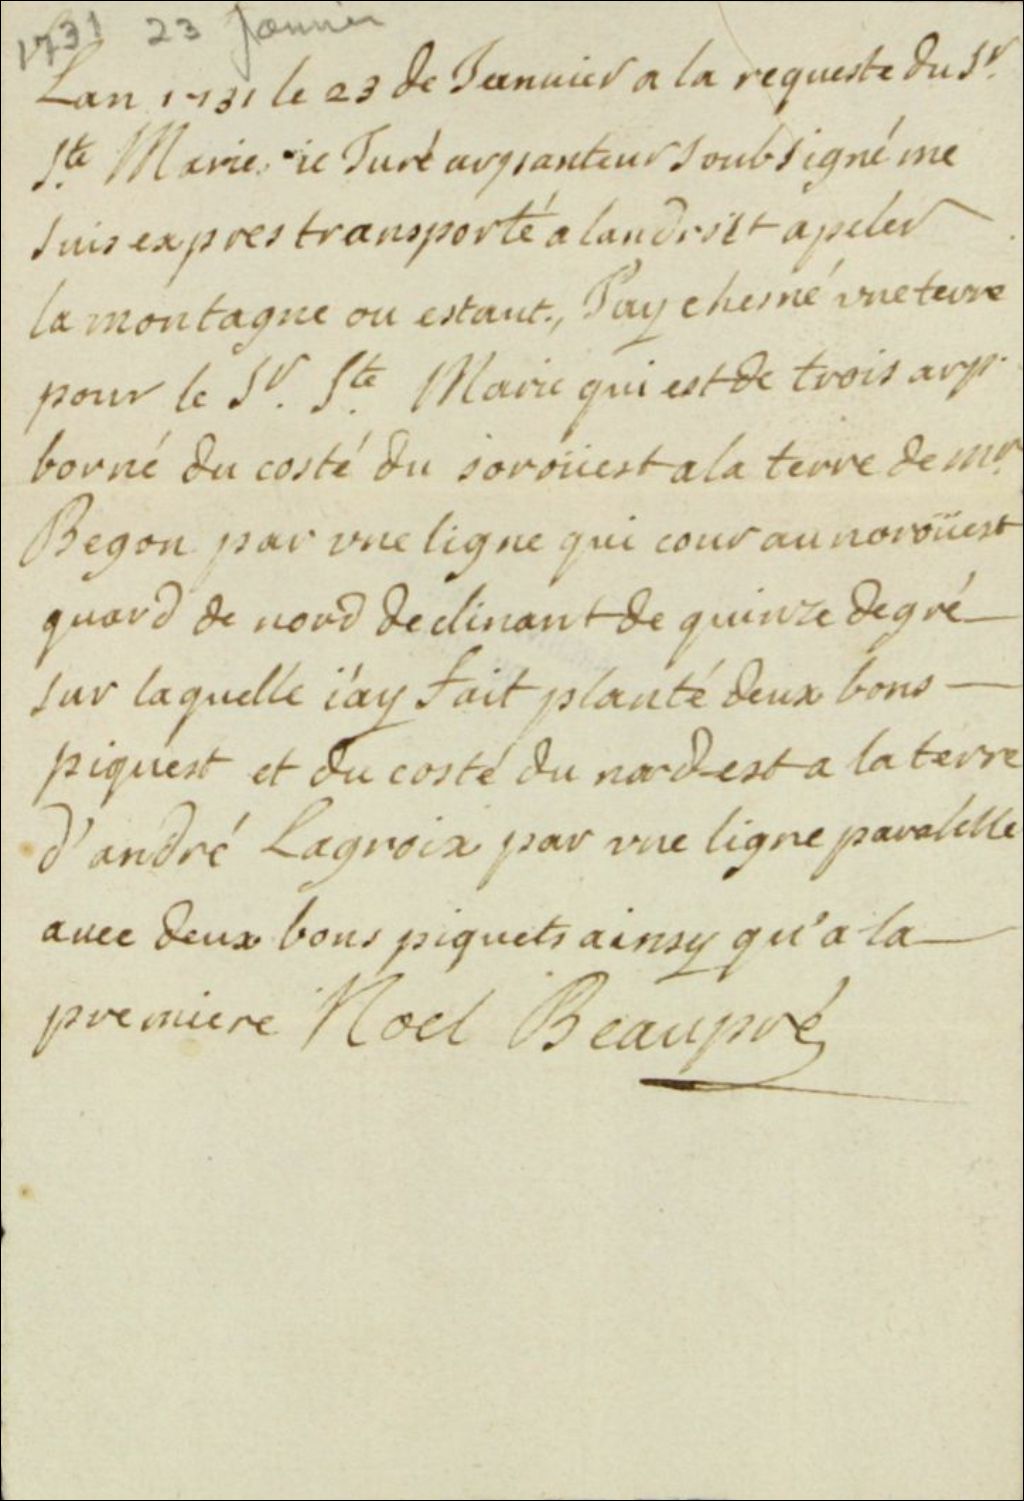 1731 23 Janvier
Lan 1731 le 23 de Jeanuier a la requeste du Sr.
Ste. Marie, ie Juré arpanteur Soubsigné me
suis expres transporté a landrsit apeler
la montagne ou estant., J'ay chesné vne terre
pour le Sr. Ste. Marie qui est de trois arp.
borné du costé du soroüest a la terre de mr.
Begon par vne ligne qui cour au noroüest
quard de nord declinant de quinze degré
sur laquelle i'ay fait planté deux bons
piquest et du costé du nord est a la terre
d'andré Lagroix par vne ligne paralelle
auec deux bons piquets ainsy qu'a la
premiere Noel Beaupré